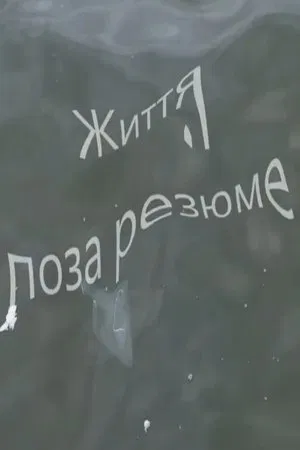 Життя,
поза резюме